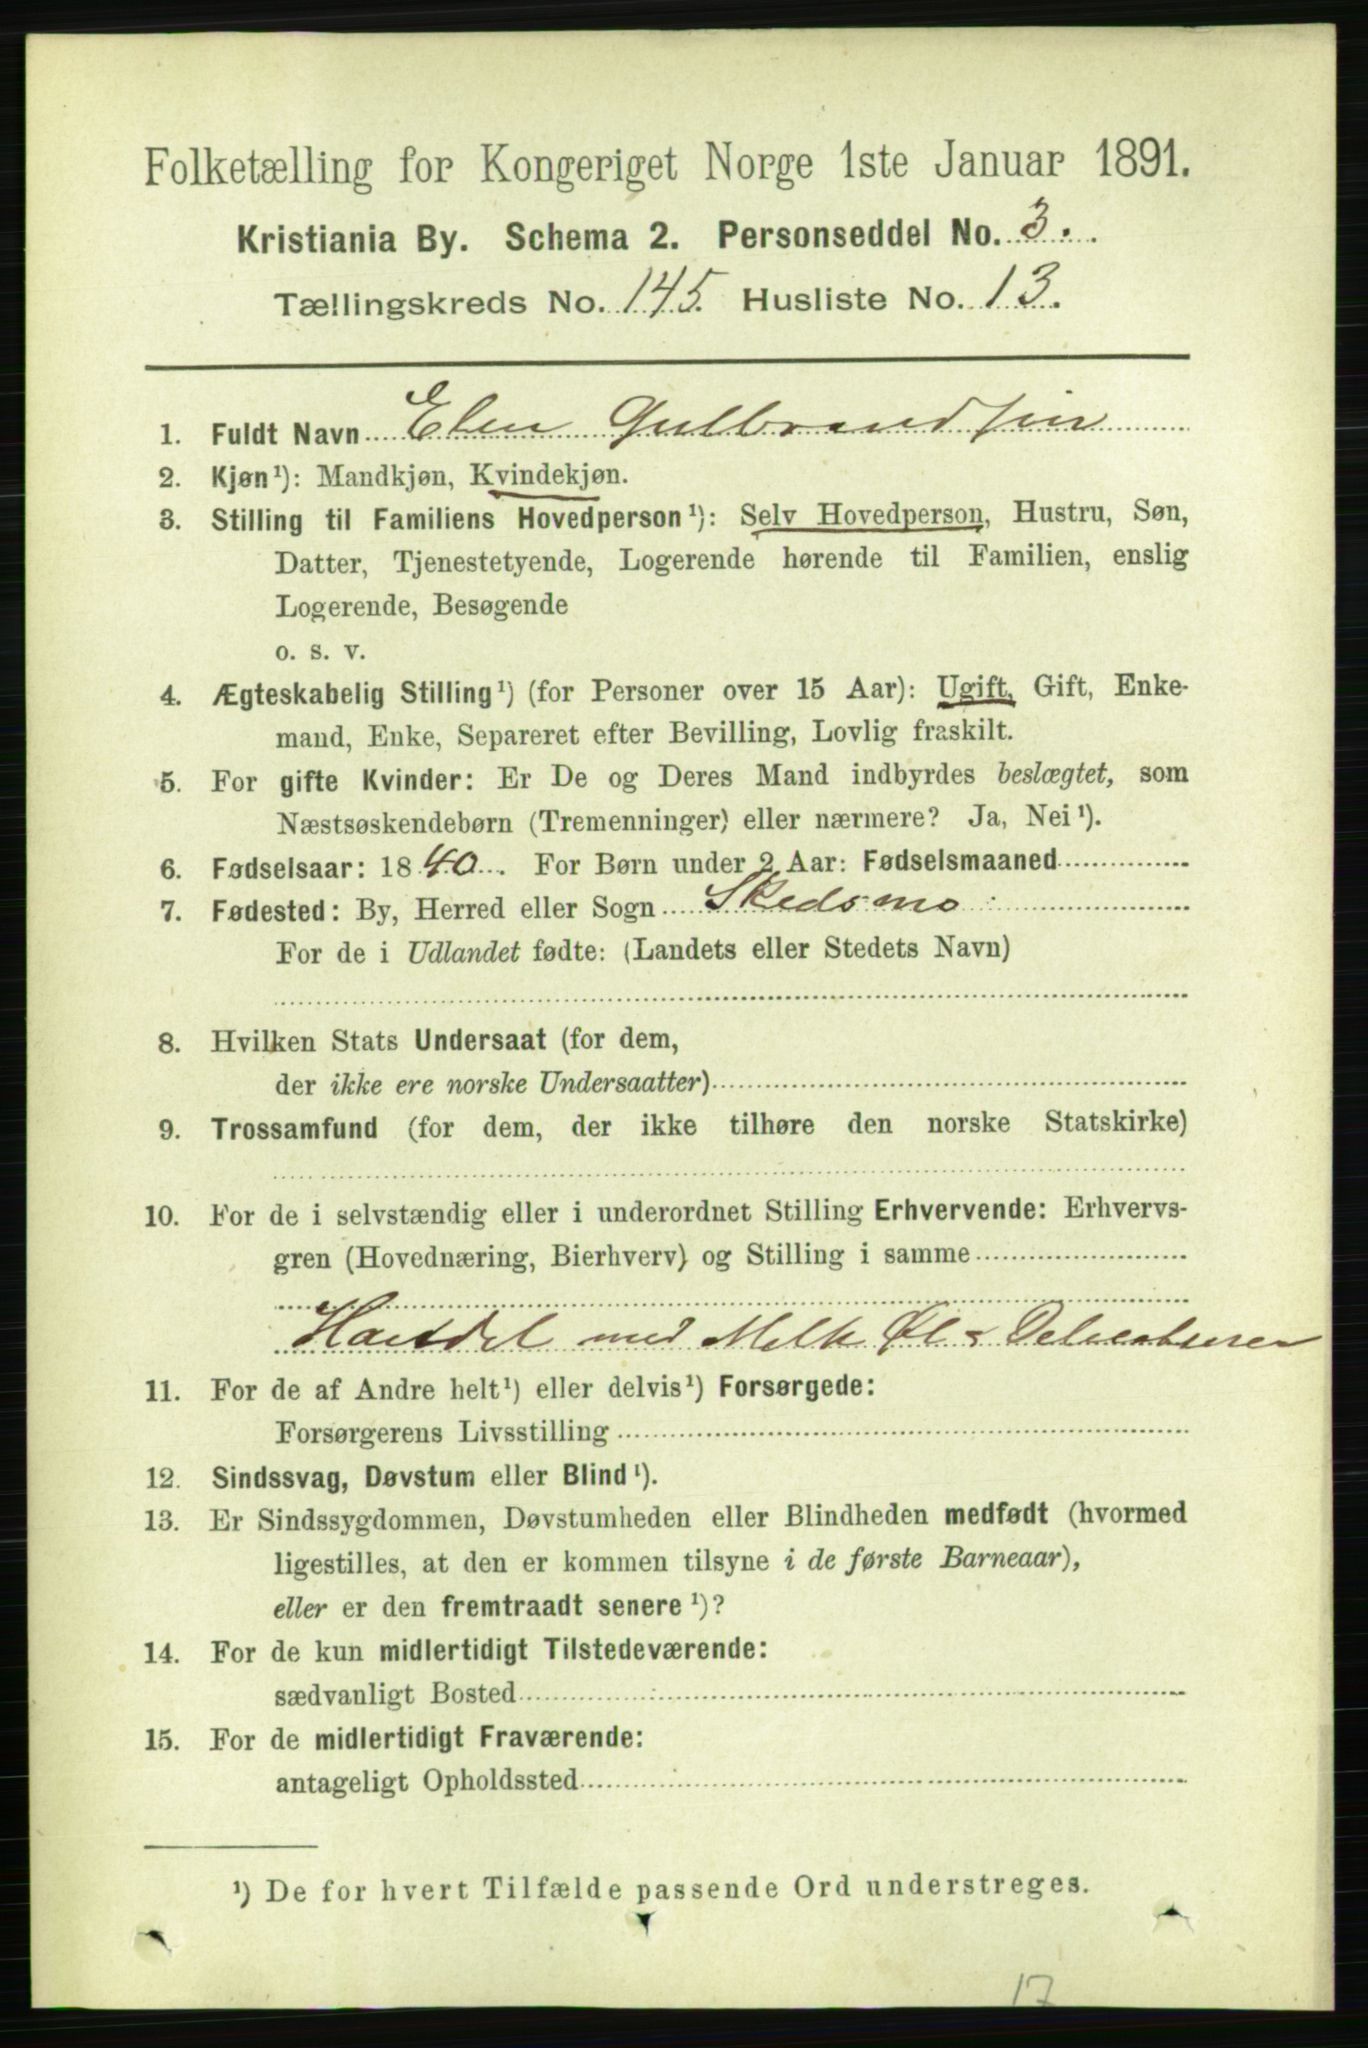 Folketælling for Kongeriget Norge 1ste Januar 1891.
Kristiania By. Schema 2. Personseddel No. 3.
Tællingskreds No. 145. Husliste No. 13.
1. Fuldt Navn Elen Gulbrandsen
2. Kjøn¹): Mandkjøn, Kvindekjøn.
3. Stilling til Familiens Hovedperson¹): Selv Hovedperson, Hustru, Søn,
Datter, Tjenestetyende, Logerende hørende til Familien, enslig
Logerende, Besøgende
o. s. v.
4. Ægteskabelig Stilling¹) (for Personer over 15 Aar): Ugift, Gift, Enke-
mand, Enke, Separeret efter Bevilling, Lovlig fraskilt.
5. For gifte Kvinder: Er De og Deres Mand indbyrdes beslægtet, som
Næstsøskendebørn (Tremenninger) eller nærmere? Ja, Nei¹).
6. Fødselsaar: 1840. For Børn under 2 Aar: Fødselsmaaned
7. Fødested: By, Herred eller Sogn Skedsmo
For de i Udlandet fødte: (Landets eller Stedets Navn)
8. Hvilken Stats Undersaat (for dem,
der ikke ere norske Undersaatter)
9. Trossamfund (for dem, der ikke tilhøre den norske Statskirke)
10. For de i selvstændig eller i underordnet Stilling Erhvervende: Erhvervs-
gren (Hovednæring, Bierhverv) og Stilling i samme
Handel med Melk Øl &
11. For de af Andre helt¹) eller delvis¹) Forsørgede:
Forsørgerens Livsstilling
12. Sindssvag, Døvstum eller Blind¹).
13. Er Sindssygdommen, Døvstumheden eller Blindheden medfødt (hvormed
ligestilles, at den er kommen tilsyne i de første Barneaar),
eller er den fremtraadt senere¹)?
14. For de kun midlertidigt Tilstedeværende:
sædvanligt Bosted
15. For de midlertidigt Fraværende:
antageligt Opholdssted
¹) De for hvert Tilfælde passende Ord understreges.
17